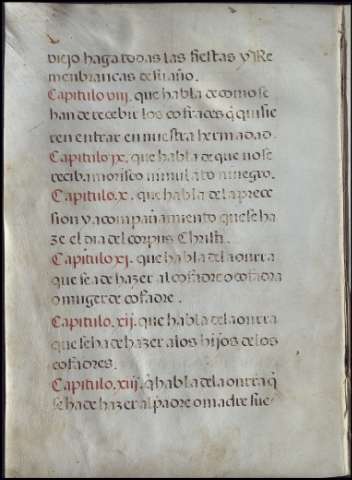 viejo haga todas las fiestas y Re
menbrancas de su año.
Capitulo viij. que habla de como se
han de recebir los cofrades q̃ quisie
ren entrar en nuestra hermadad.
Capitulo jx. que habla de que no se
reciba morisco ni mulato ni negro.
Capitulo. x. que habla de la proce
sion y acompañamiento que se ha
ze el dia del corpus Christi.
Capitulo xj. que habla de la onrra
que se a de hazer al cofadre o cofadra
o muger de cofadre.
Capitulo. xij. que habla de la onrra
que se ha de hazer a los hijos de los
cofadres.
Capitulo. xiij. q̃ habla de la onrra q̃
se ha de hazer al padre o madre sue-